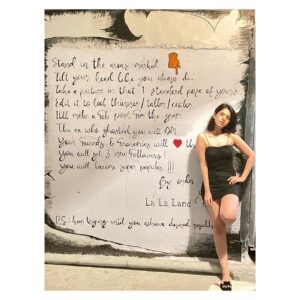 Stand in the areas marked.
Tilt your head like you always do.
Take a picture in that 1 standard pose of yours.
Edit it to look thinner / taller / cooler
It'll make a fab post for the year.
The ex who ghosted you will DM.
Your Friends & Frenemies will ❤ the
you will get 3 new followers!
You will become super popular!!!
By order
La La Land
P.S: Keep trying until you achieve desired results